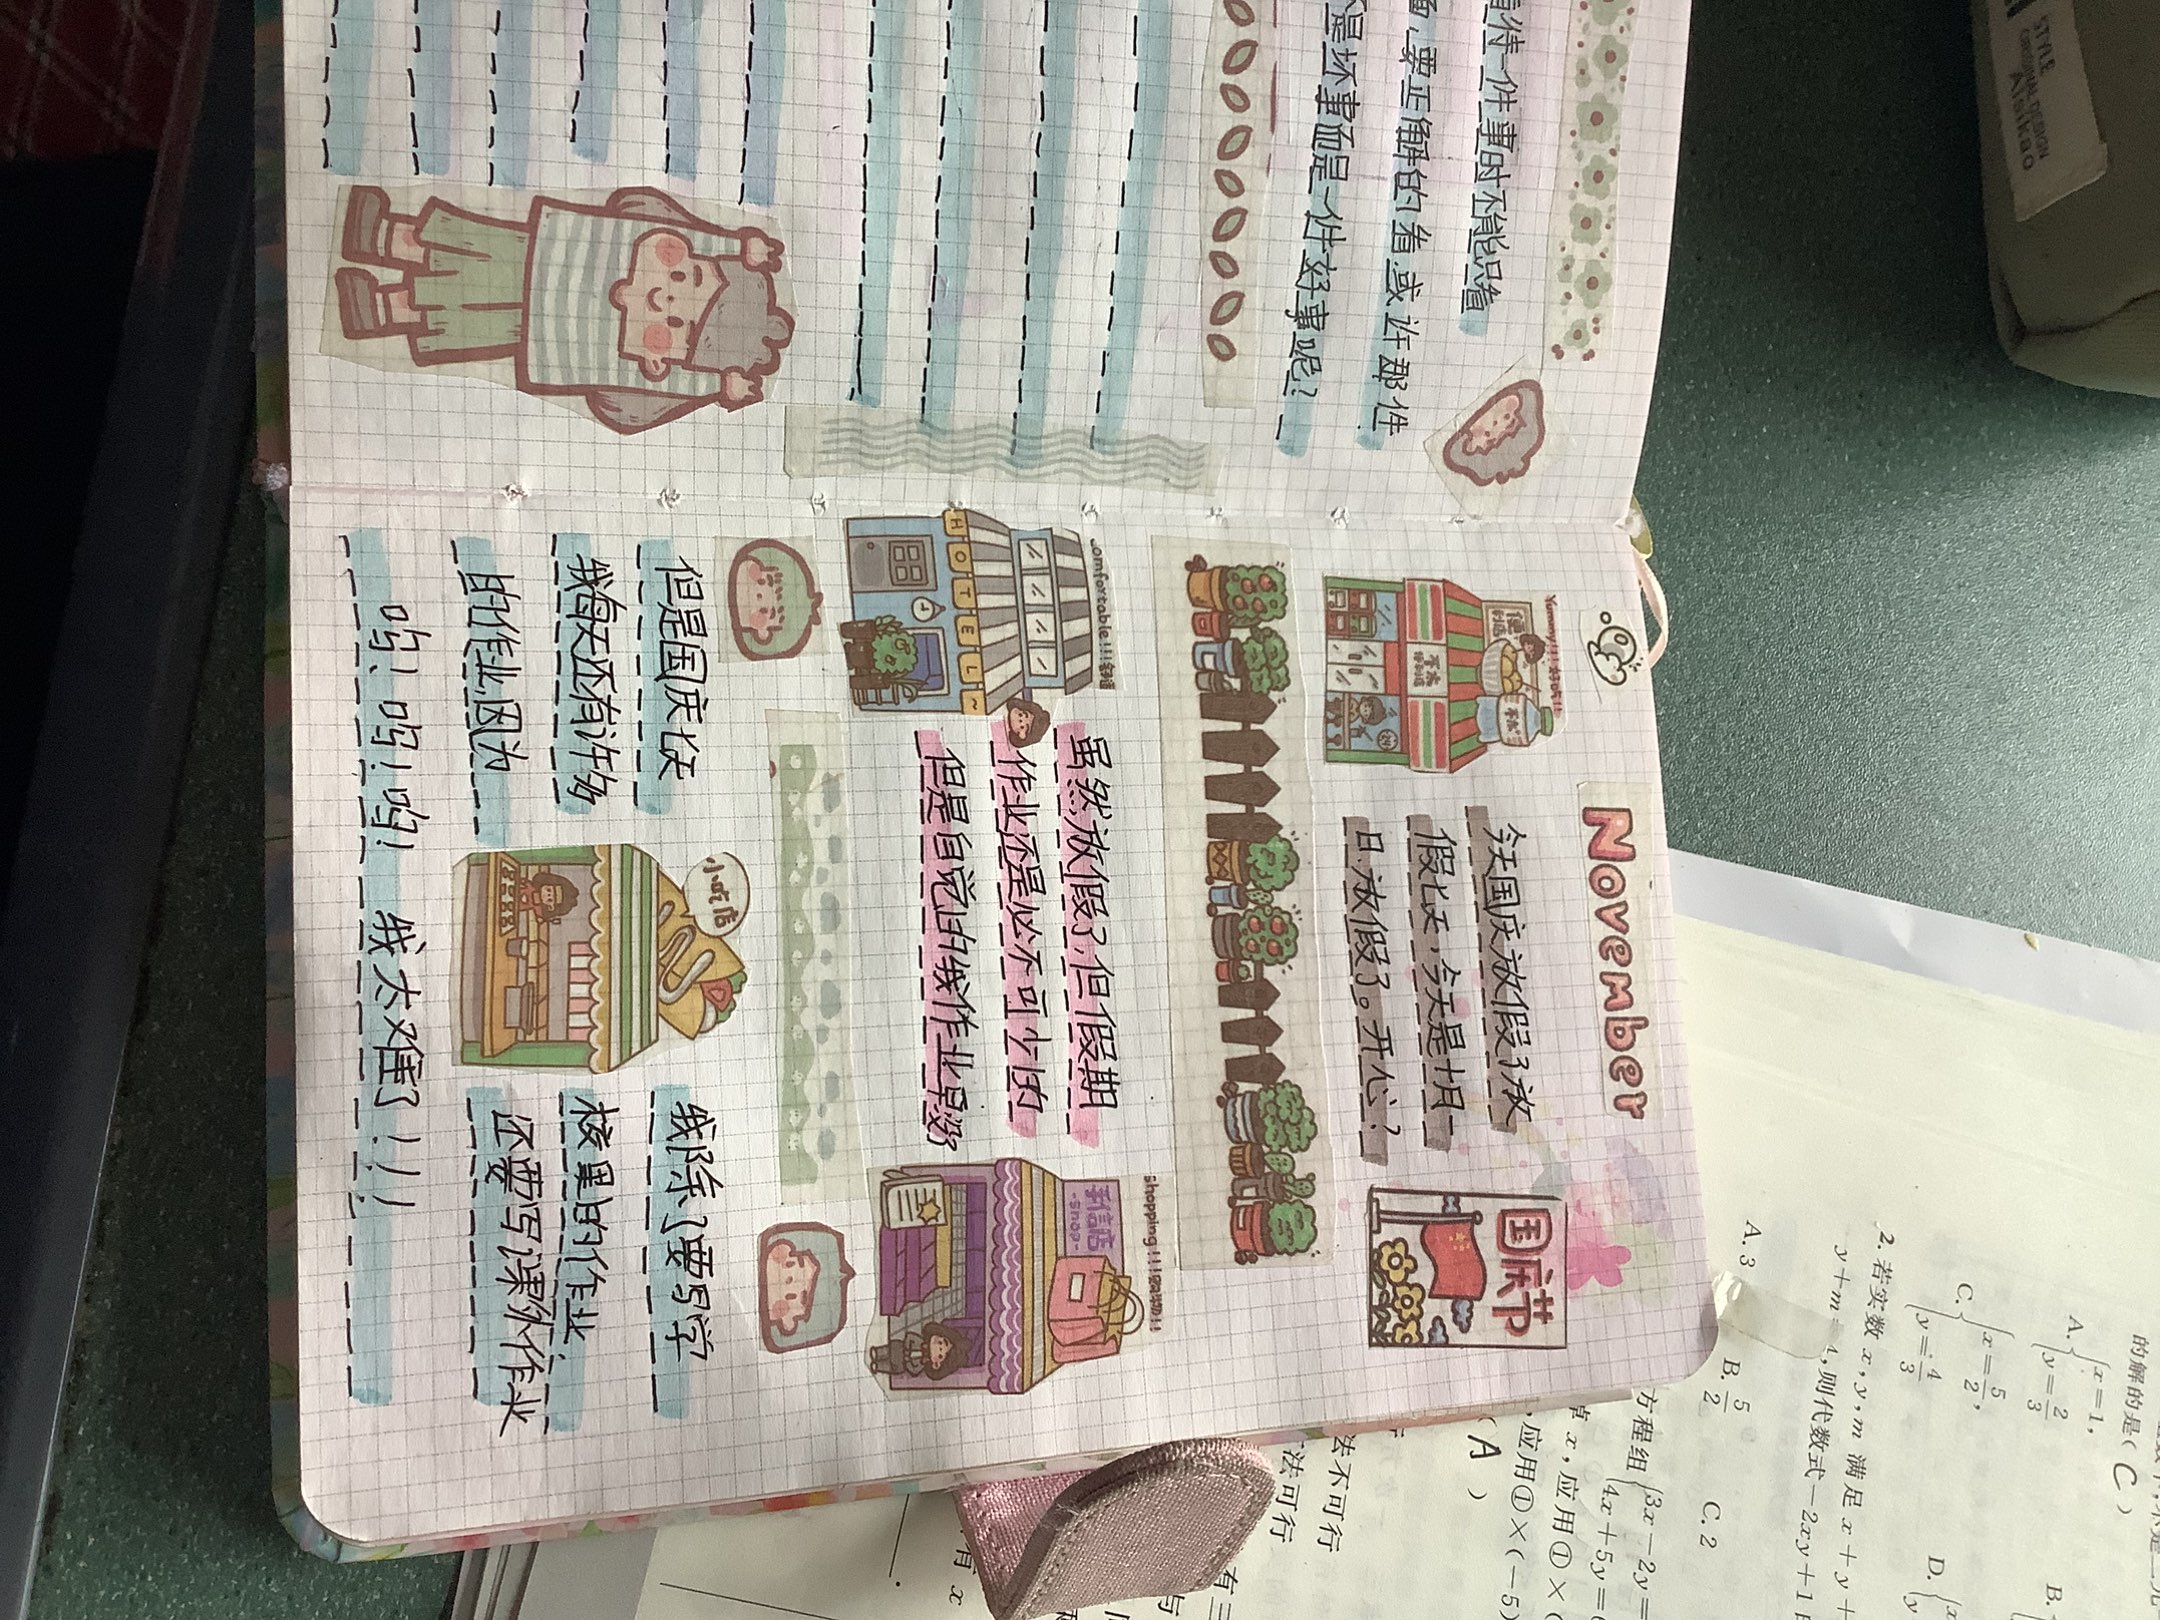 看待一件事时不能只看
面,要正确的看,或许那件
不是坏事而是一件好事呢?
November
今天国庆放假了放
假七天,今天是十月一
日,放假了。开心?
国庆节
Yummy!!!好吃!!
便利店
omfortable!!!舒适
HOTEL~
虽然放假了,但假期
作业还是必不可少的
但是自觉的我作业早
shopping!!!!购物!!
手信店
-shop-
但是国庆七天
我每天还有许多
的作业,因为
小吃店
我除了要写学
校里的作业
还要写课外作业
呜!呜!呜! 我太难了!!!
STYLE
ORIGINAL DESIGN
Aisikao
的解的是( C )
A. {x=1, y=2/3
B.
C. {x=5/2, y=4/3
D. {x y
2. 若实数 x,y,m 满足 x+y+
y+m=4,则代数式-2xy+1
A. 3
B. 5/2
C. 2
方程组{3x-2y= 4x+5y=
x,应用①×(
,应用①×(-5)
( A )
法不可行
法可行
有三
与
有 x